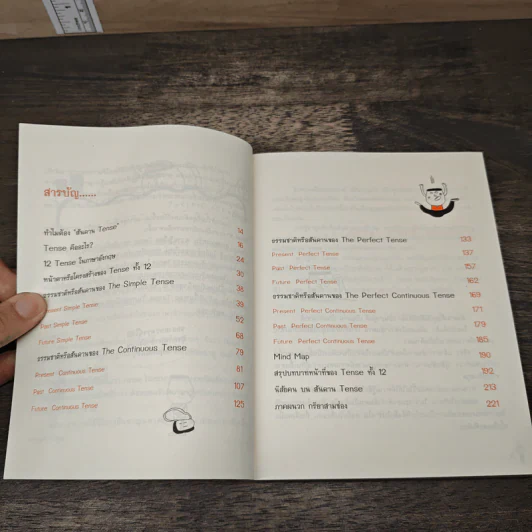 สารบัญ......
ทำไมต้อง "สันดาน Tense" 14
Tense คืออะไร? 16
12 Tense ในภาษาอังกฤษ 24
หน้าตาหรือโครงสร้างของ Tense ทั้ง 12 30
ธรรมชาติหรือสันดานของ The Simple Tense 38
Present Simple Tense 39
Past Simple Tense 52
Future Simple Tense 68
ธรรมชาติหรือสันดานของ The Continuous Tense 79
Present Continuous Tense 81
Past Continuous Tense 107
Future Continuous Tense 125
ธรรมชาติหรือสันดานของ The Perfect Tense 133
Present Perfect Tense 137
Past Perfect Tense 157
Future Perfect Tense 162
ธรรมชาติหรือสันดานของ The Perfect Continuous Tense 169
Present Perfect Continuous Tense 171
Past Perfect Continuous Tense 179
Future Perfect Continuous Tense 185
Mind Map 190
สรุปบทบาทหน้าที่ของ Tense ทั้ง 12 192
นิสัยคน บน สันดาน Tense 213
ภาคผนวก กริยาสามช่อง 221